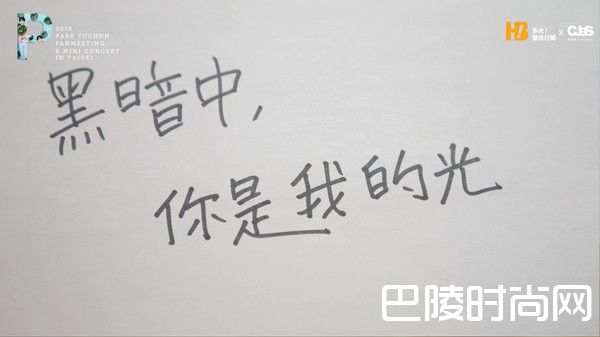 P
2018
PARK YUCHUN
FANMEETING
& MINI CONCERT
IN TAIPEI
HB 多大!
整合行銷 X CJeS
黑暗中,
你是我的光
巴陵时尚网